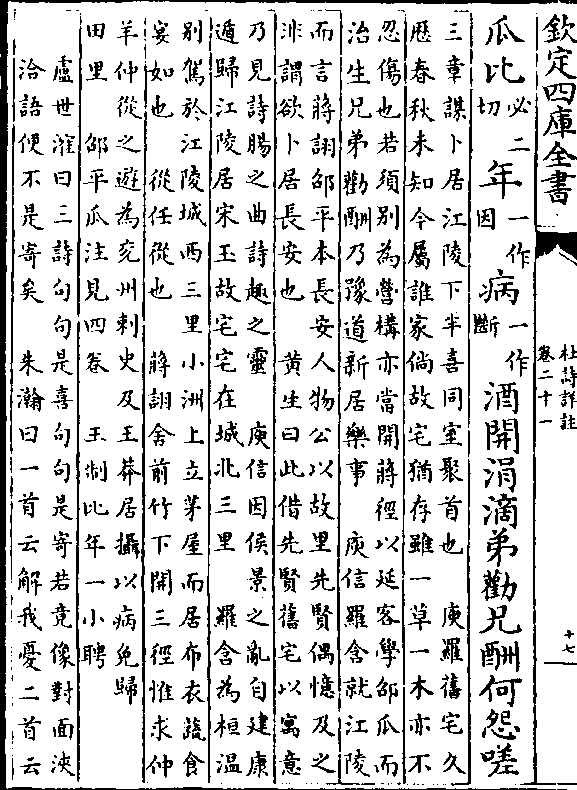 欽定四庫全書
杜詩詳註
卷二十一
十七
瓜比必二切年一作因病一作斷酒開涓滴弟勸兄酬何怨嗟
三章謀卜居江陵下半喜同室聚首也　庾羅舊宅久
厯春秋未知今屬誰家倘故宅猶存雖一草一木亦不
忍傷也若須别為營構亦當開蔣徑以延客學邵瓜而
治生兄弟勸酬乃豫道新居樂事　庾信羅含就江陵
而言蔣詡邵平本長安人物公以故里先賢偶憶及之
非謂欲卜居長安也　黄生曰此借先賢舊宅以寓意
乃見詩腸之曲詩趣之靈　庾信因侯景之亂自建康
遁歸江陵居宋玉故宅宅在城北三里　羅含為桓温
别駕於江陵城西三里小洲上立茅屋而居布衣蔬食
宴如也　從任從也　蔣詡舍前竹下開三徑惟求仲
羊仲從之遊為兖州刺史及王莽居攝以病免歸
田里　邵平瓜注見四卷　王制比年一小聘
盧世㴶曰三詩句句是喜句句是寄若竟像對面浹
洽語便不是寄矣　朱瀚曰一首云解我憂二首云